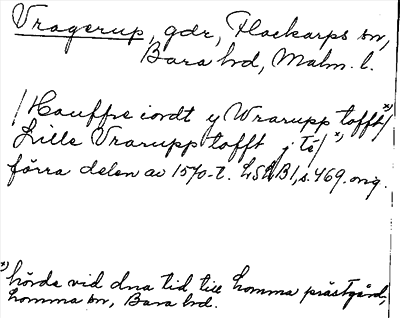 Vragerup, gdr, Flackarps sn,
Bara hd, Malm. l.
/Hauffre iordt y Wrarupp tofft x)/
Lille Vrarupp tofft j té/ x)
förra delen av 1570-t. LSLB I, s. 469. orig.
x) hörde vid dna tid till Lomma prästgård,
Lomma sn, Bara hd.